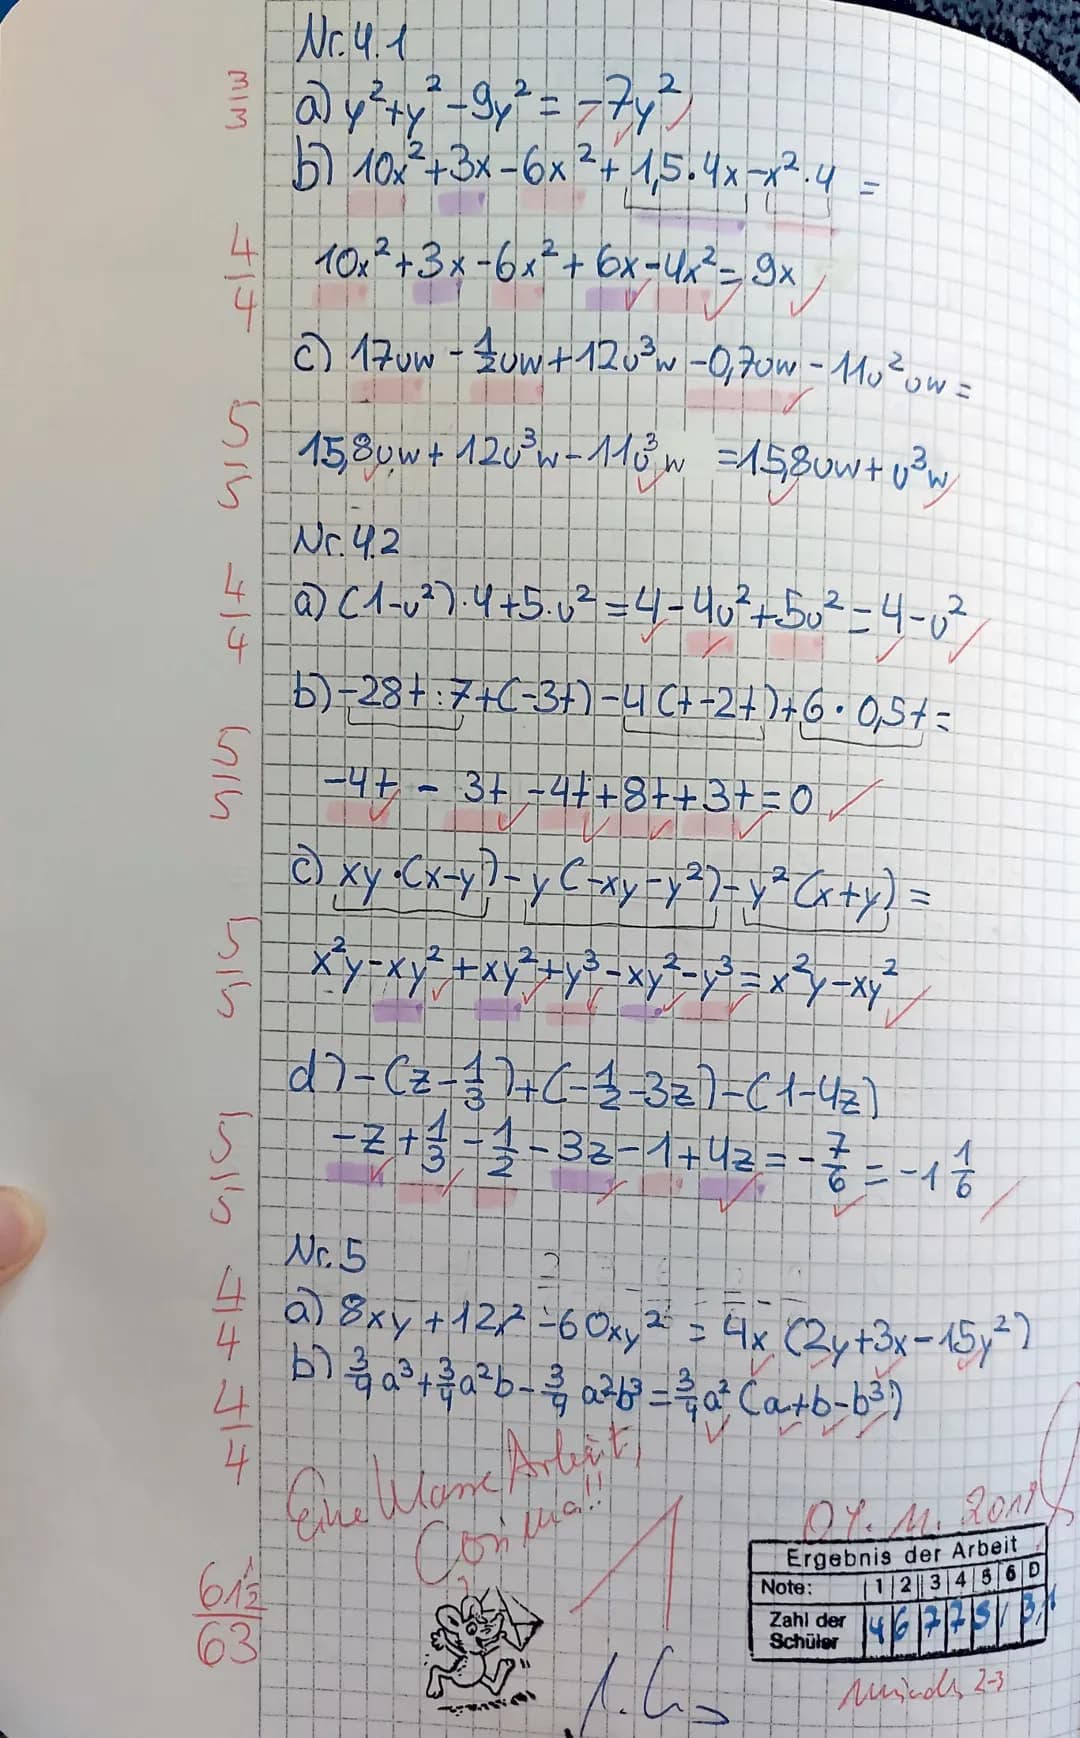 Nr. 4.1
3/3
a) y²+y²-9y² = -7y²
b) 10x²+3x-6x²+1,5·4x-x²·4 =
4/4
10x²+3x-6x²+6x-4x²= 9x
c) 17vw - 1/2vw+12v³w -0,7vw - 11v²vw =
5/5
15,8vw+12v³w-11v³w =15,8vw+v³w
Nr. 4.2
4/4
a) (1-v²)·4+5·v² =4-4v²+5v²=4-v²
b) -28t:7+(-3t)-4(t-2t)+6·0,5t=
5/5
-4t - 3t -4t+8t+3t=0
c) xy·(x-y)-y(-xy-y²)-y²(x+y) =
5/5
x²y-xy²+xy²+y³-xy²-y³=x²y-xy²
d) -(z-1/3)+(-1/2-3z)-(1-4z)
5/5
-z+1/3-1/2-3z-1+4z=-7/6=-1 1/6
Nr. 5
4/4
a) 8xy+12x²-60xy² = 4x (2y+3x-15y²)
4/4
b) 3/4a³+3/4a²b-3/4a²b³=3/4a²(a+b-b³)
Eine klasse Arbeit,
1
61 1/2 / 63
Ergebnis der Arbeit
Note: 1 2 3 4 5 6 D
Zahl der Schüler 4 6 7 7 5 / 3,1
mündl. 2-3